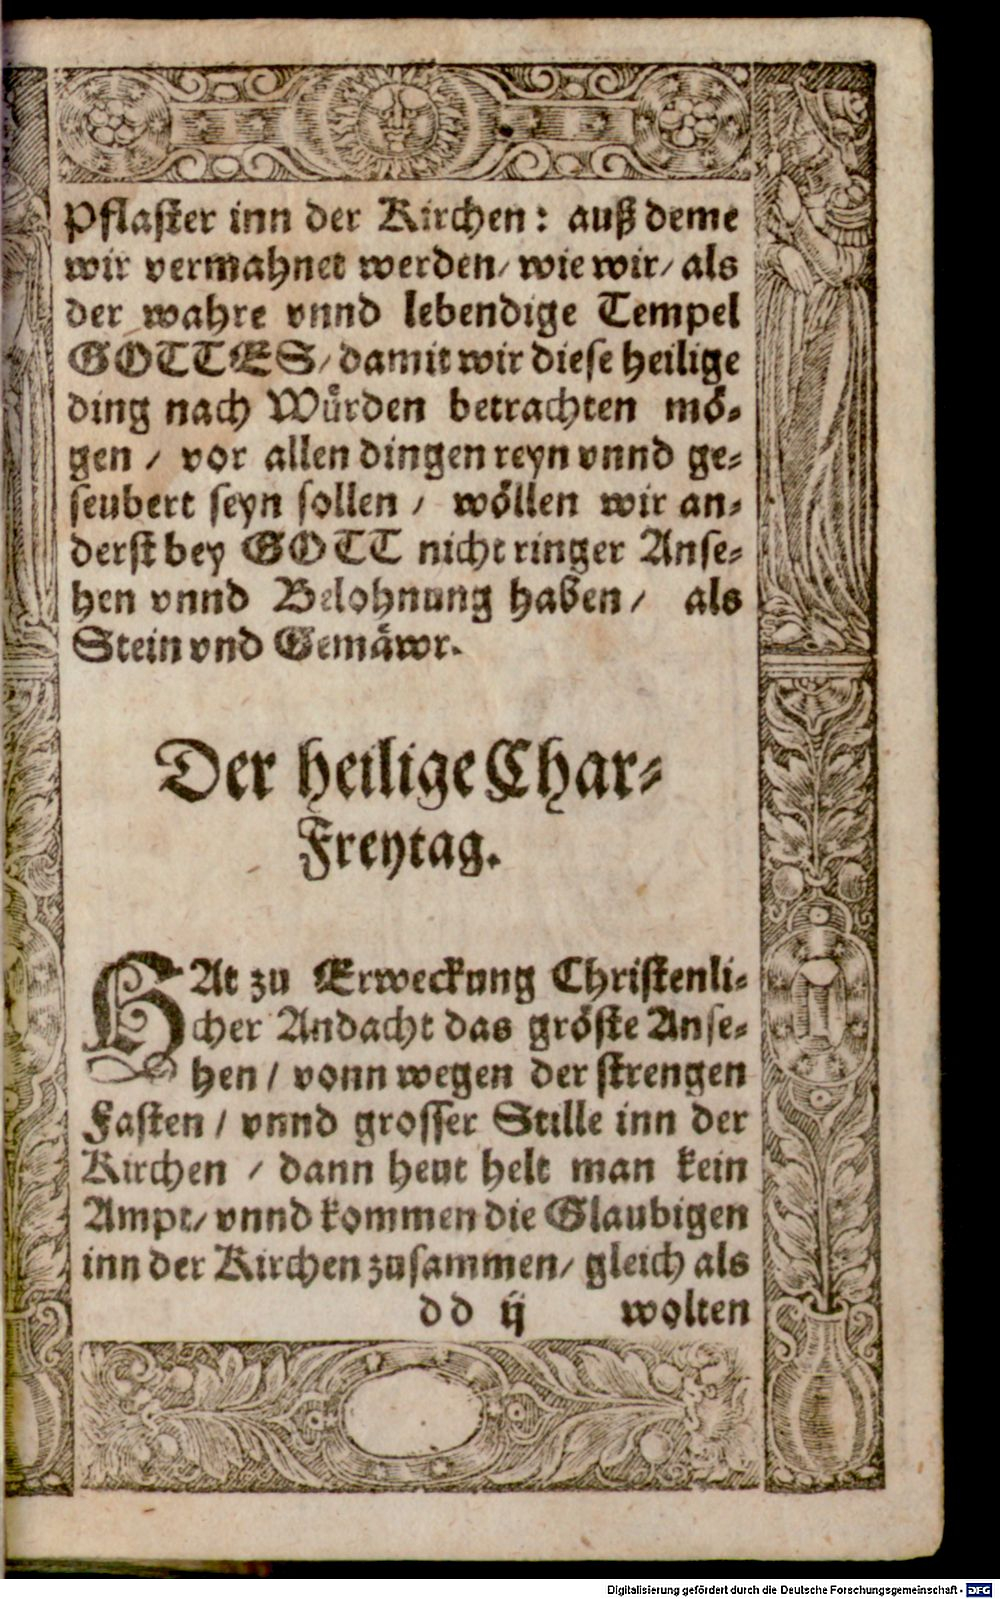 Pflaster inn der Kirchen: auß deme
wir vermahnet werden/ wie wir/ als
der wahre vnnd lebendige Tempel
GOTTES/ damit wir diese heilige
ding nach Wuͤrden betrachten moͤ-
gen / vor allen dingen reyn vnnd ge-
seubert seyn sollen / woͤllen wir an-
derst bey GOTT nicht ringer Anse-
hen vnnd Belohnung haben/ als
Stein vnd Gemaͤwr.
Der heilige Char-
Freytag.
HAt zu Erweckung Christenli-
cher Andacht das groͤste Anse-
hen / vonn wegen der strengen
Fasten / vnnd grosser Stille inn der
Kirchen / dann heut helt man kein
Ampt/ vnnd kommen die Glaubigen
inn der Kirchen zusammen/ gleich als
dd ij wolten
Digitalisierung gefördert durch die Deutsche Forschungsgemeinschaft - DFG